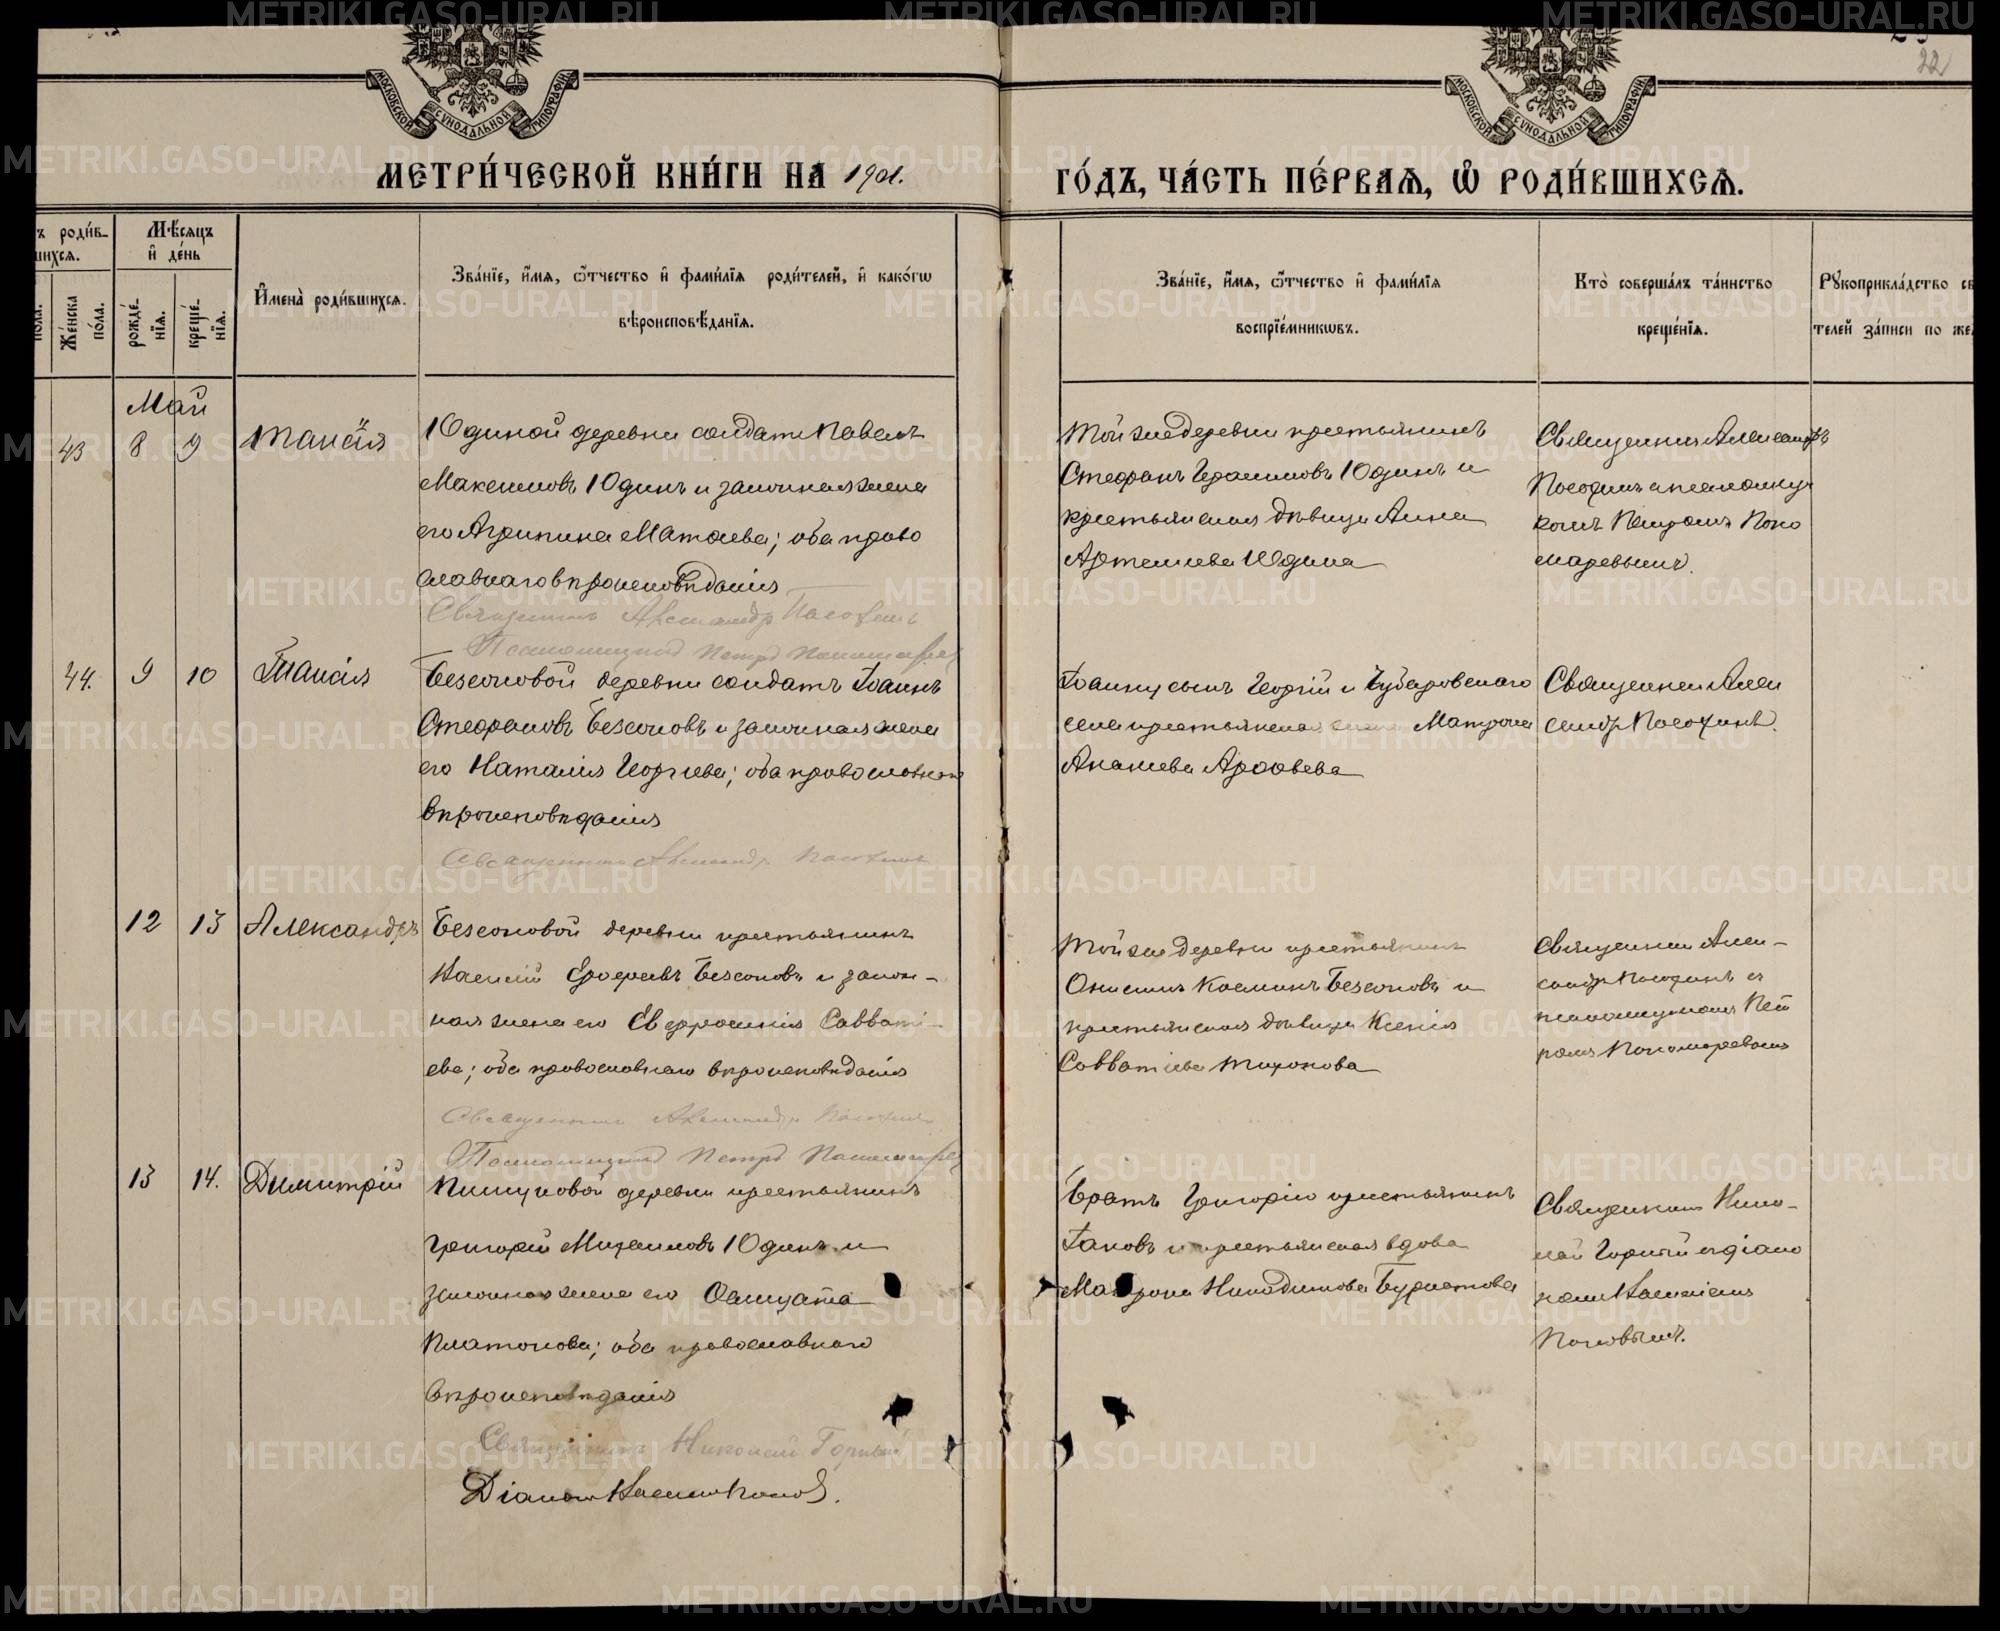 МЕТРИ́ЧЕСКОЙ КНИ́ГИ НА 1901.
ГО́ДЪ, ЧА́СТЬ ПЕ́РВАѦ, Ѽ РОДИ́ВШИХСѦ.
МОСКОВСКОЙ СѴНОДАЛЬНОЙ ТИПОГРАФІИ
МОСКОВСКОЙ СѴНОДАЛЬНОЙ ТИПОГРАФІИ
22
ъ роди́в-
шихсѧ.
пола.
Же́нска по́ла.
Мѣ́сѧцъ и҆ де́нь
рожде́нїѧ.
креще́нїѧ.
И҆мена̀ роди́вшихсѧ.
Зва́нїе, и҆́мѧ, ѻ҆́тчество и҆ фами́лїѧ роди́телей, и҆ како́гѡ
вѣроисповѣ́данїѧ.
Зва́нїе, и҆́мѧ, ѻ҆́тчество и҆ фами́лїѧ
воспрїе́мникѡвъ.
Кто̀ соверша́лъ та́инство
креще́нїѧ.
Рꙋкоприкла́дство св
телей за́писи по же
Май
43 8 9 Таисія
Юдиной деревни солдатъ Павелъ
Максимовъ Юдинъ и законная жена
его Агрипина Матѳеева; оба право
славнаго вѣроисповѣданія
Священникъ Александр Посохинъ
Псаломщикъ Петръ Пономарев
Той же деревни крестьянинъ
Стефанъ Герасимовъ Юдинъ и
крестьянская дѣвица Анна
Артемиева Юдина
Священник Александръ
Посохинъ с псаломщи
комъ Петромъ Поно
маревымъ.
44. 9 10 Таисія
Безсоновой деревни солдатъ Іоаннъ
Стефановъ Безсоновъ и законная жена
его Наталія Георгіева; оба православнаго
вѣроисповѣданія
Священникъ Александръ Посохинъ
Іоанну сынъ Георгій и Чубаровскаго
села крестьянская Матрона
Ананіева
Священник Алек
сандр Посохинъ.
12 13 Александръ
Безсоновой деревни крестьянинъ
Василій Ефремъ Безсоновъ и закон-
ная жена его Евфросинія Савваті-
ева; оба православнаго вѣроисповѣданія
Священникъ Александръ Посохинъ
Псаломщикъ Петръ Пономарев
Той же деревни крестьянинъ
Онисимъ Косминъ Безсоновъ и
крестьянская дѣвица Ксенія
Савватіева Тихонова
Священник Алек-
сандр Посохинъ съ
псаломщикомъ Пет
ромъ Пономаревымъ
13 14. Димитрій
Пишуковой деревни крестьянинъ
Григорій Михаиловъ Юдинъ и
законная жена его
Платонова; оба православнаго
вѣроисповѣданія
Священникъ Николай Горный
Діаконъ Василій Попов.
Братъ Григорію крестьянинъ
Іаковъ и крестьянская вдова
Матрона Никодимова Бурматова
Священникъ Нико-
лай Горный с діако
номъ Василіемъ
Поповымъ.